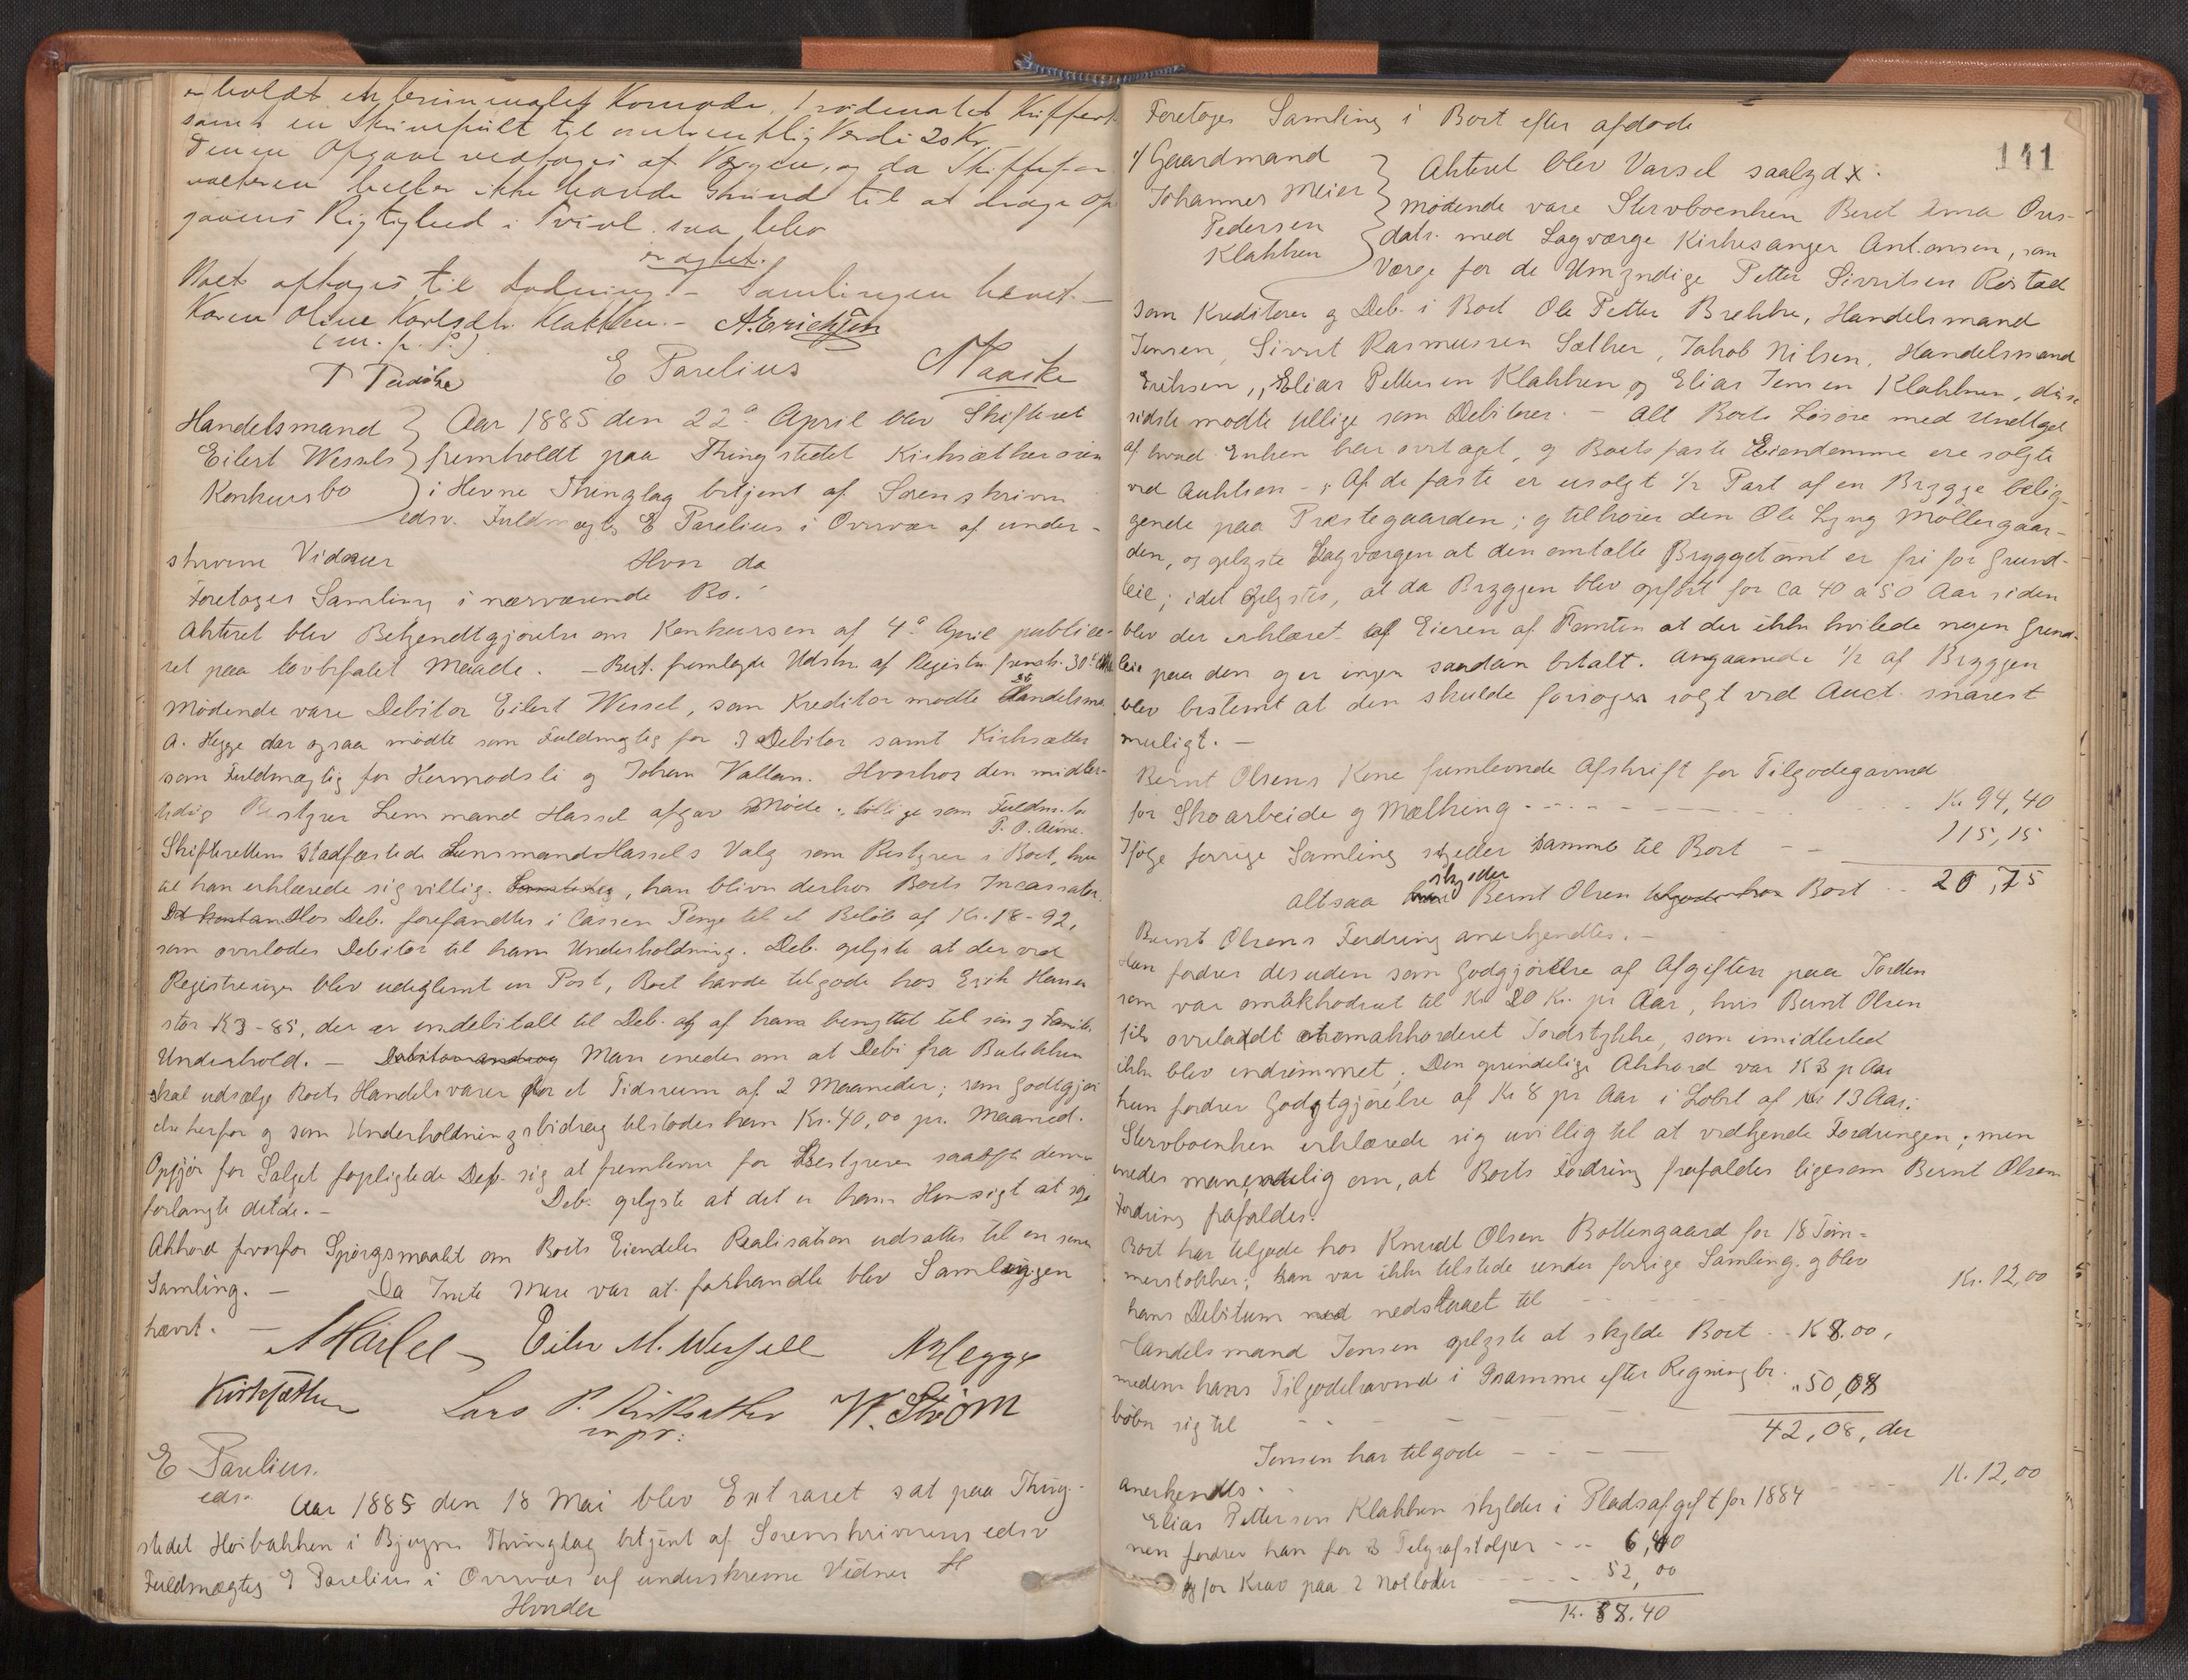 holdt en brunmalet Komode, 1 rødmalet Kuffert
samt en Skindfæld til omtrentlig Værdi 20 Kr.
Denne Opgave vedtoges af Værgen, og da Skiftefor-
valteren heller ikke havde Grund til at drage Op-
gavens Rigtighed i Tvivl, saa blev
eragtet.
Boet optages til Lodning. – Samlingen hævet. –
Karen Oline Karlsdtr. Klakken. – A. Erichsen
(m. p. P.)
E Parelius
Handelsmand } Aar 1885 den 22de April blev Skifteret
Eilert Wessels } fremholdt paa Thingstedet Kirksæterøren
Konkursbo } i Hevne Thinglag betjent af Sorenskriver
edsv. Fuldmægtig E Parelius i Overvær af under-
skrevne Vidner Hvor da
Foretoges Samling i nærværende Bo.
Akteret blev Bekjendtgjørelse om Konkursen af 4de April publice-
ret paa lovbefalet Maade. – Best. fremlagde Udskr. af Registr. fremh. 30te
Mødende vare Debitor Eilert Wessel, som Kreditor mødte Handelsma
A. Hegge der ogsaa mødte som Fuldmægtig for 3 Debitor samt Kirksæter
som Fuldmægtig for Hermodsli og Johan Vallan. Hvorhos den midler-
tidig Bestyrer Lensmand Hassel afgav Møde, tillige som Fuldm. for
P. O. Aune.
Skifteretten stadfæstede Lensmand Hassels Valg som Bestyrer i Boet, hvor
til han erklærede sig villig. , han bliver derhos Boets Incassator.
Hos Deb. forefandtes i Cassen Penge til et Beløb af Kr. 18-92,
som overlodes Debitor til hans Underholdning. Deb. oplyste at der ved
Registreringen blev udeglemt en Post, Boet havde tilgode hos Erik Hansen
stor K3-85, der er indebitalt til Deb. og af ham benyttet til sin og Familie
Underhold. – Man enedes om at Debi fra Butikken
skal udsælge Boets Handelsvarer for et Tidsrum af 2 Maaneder; som Godtgjør
else herfor og som Underholdningsbidrag tilstodes ham Kr. 40,00 pr. Maaned.
Opgjør for Salget forpligtede Deb. sig at fremlevere for Bestyreren saaofte denne
forlangte dette. – Deb. oplyste at det er hans Hensigt at søge
Akkord hvorfor Spørgsmaalet om Boets Eiendeles Realisation udsattes til en senere
Samling. – Da Intet mere var at forhandle blev Samlingen
hævet. –
A Hassel Eiler M. Wessell A Hegge
Kirksæther Lars P. Kirksæther W. Strøm
m p. P.
E Parelius.
edsv. Aar 1885 den 18 Mai blev Extraret sat paa Thing-
stedet Høibakken i Bjugn Thinglag betjent af Sorenskriverens edsv
Fuldmægtig E Parelius i Overvær af underskrevne Vidner
Hvorda
141
Foretoges Samling i Boet efter afdøde
1/ Gaardmand } Akteret blev Varsel saalyd x.
Johannes Meier } Mødende vare Stervboenken Beret Anna Ous-
Pedersen } datr. med Lagværge Kirkesanger Antonsen, som
Klakken } Værge for de Umyndige Petter Sivertsen Røstad
som Kreditorer og Deb. i Boet Ole Petter Brekke, Handelsmand
Jensen, Sivert Rasmussen Sæther, Jakob Nilsen, Handelsmand
Eriksen, Elias Pettersen Klakken og Elias Jensen Klakken, disse
sidste mødte tillige som Debitorer. – Alt Boets Løsøre med Undtagel
af hvad Enken har overtaget, og Boets faste Eiendomme ere solgte
ved Auktion –, Af de faste er usolgt 1/2 Part af en Brygge belig-
gende paa Præstegaarden; og tilhører den Ole Lyng Møllergaar-
den, og oplyste Lagværgen at den omtalte Bryggetomt er fri for Grund-
leie; idet oplystes, at da Bryggen blev opført for ca 40 a 50 Aar siden
blev der erklæret af Eieren af Tomten at der ikke hvilede nogen Grund-
leie paa den og er ingen saadan betalt. Angaaende 1/2 af Bryggen
blev bestemt at den skulde forsøges solgt ved Auct. snarest
muligt. –
Bernt Olsens Kone fremlevede Afskrift for Tilgodehavend
for Skoarbeide og Mælking - - - - - - Kr 94,40
Ifølge forrige Samling skylder samme til Boet - - 115,15
altsaa skylder Bernt Olsen Boet .. 20,75
Bernt Olsens Fordring anerkjendtes. –
Han fordrer desuden som Godgjørelse af Afgiften paa Jorden
som var omakkorderet til Kr 20 Kr. pr Aar, hvis Bernt Olsen
fik overladt et omakkorderet Jordstykke, som imidlertid
ikke blev indrømmet; Den oprindelige Akkord var K 3 p Aar
hun fordrer Godtgjørelse af Kr 8 pr Aar i Løbet af 13 Aar.
Stervboenken erklærede sig uvillig til at vedkjende Fordringen; men
enedes man endelig om, at Boets Fordring frafaldes ligesom Bernt Olsens
Fordring frafaldes.
Boet har tilgode hos Knudt Olsen Bottengaard for 18 Tøm-
merstokker; han var ikke tilstede under forrige Samling, og blev
hans Debitum ned nedsat til - - - Kr. 12,00
Handelsmand Jensen oplyste at skylde Boet .. K 8.00,
medens hans Tilgodehavende i Samme efter Regning be-
løber sig til - - - - " 50,08
Jensen har tilgode - - - 42,08, der
anerkjendtes.
Elias Pettersen Klakken skylder i Pladsafgift for 1884 - - - K. 12,00
men fordrer han for 8 Telegrafstolper - - - 6,40
og for Krav paa 2 Notlodder - - - - 52,00
K. 58.40